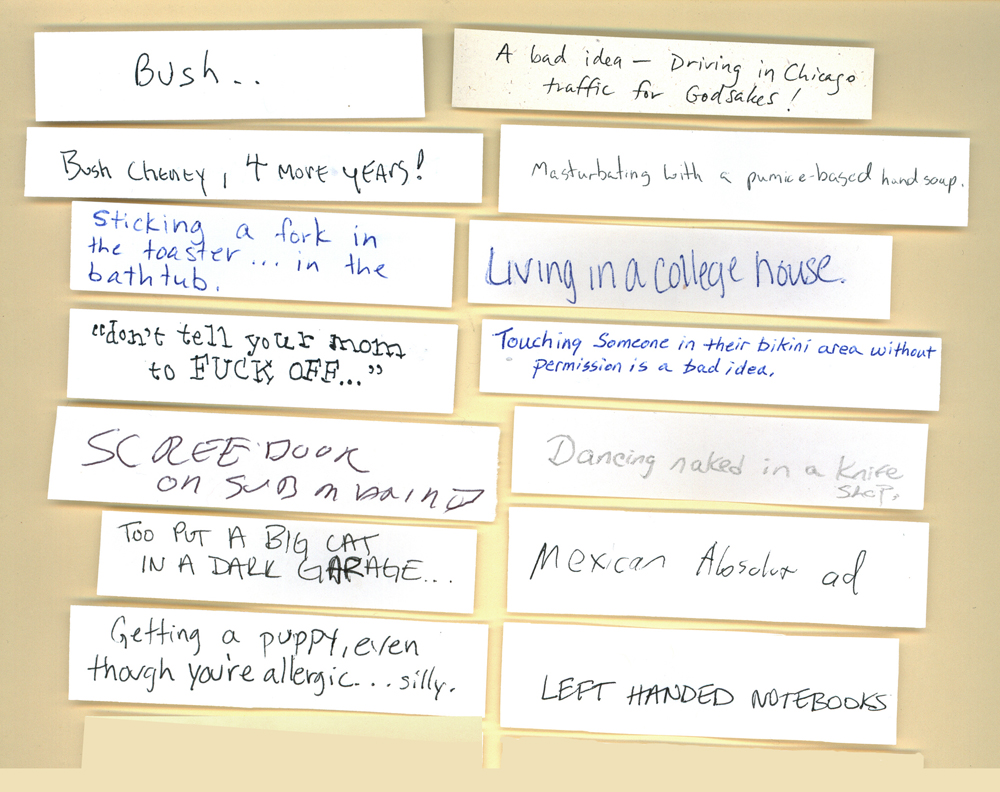 Bush..
A bad idea — Driving in Chicago
traffic for Godsakes!
Bush Cheney, 4 more years!
Masturbating with a pumice-based hand soap.
Sticking a fork in
the toaster... in the
bathtub.
Living in a college house.
"don't tell your mom
to FUCK OFF..."
Touching Someone in their bikini area without
permission is a bad idea.
SCREE DOOR
ON
Dancing naked in a Knife
Shop.
TOO PUT A BIG CAT
IN A DARK GARAGE...
Mexican Absolut ad
Getting a puppy, even
though you're allergic... silly.
LEFT HANDED NOTEBOOKS